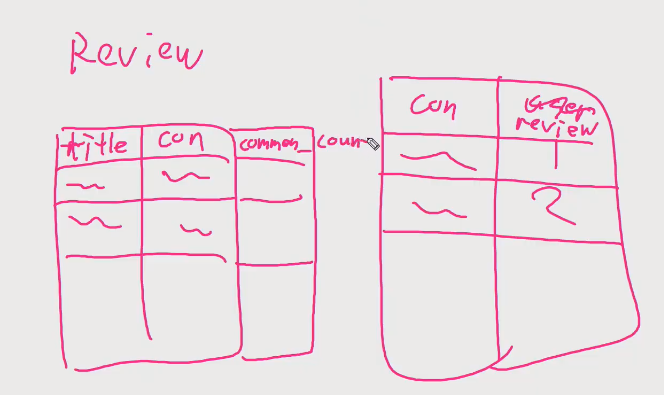 Review
title con common_ coun
con
review
1
2